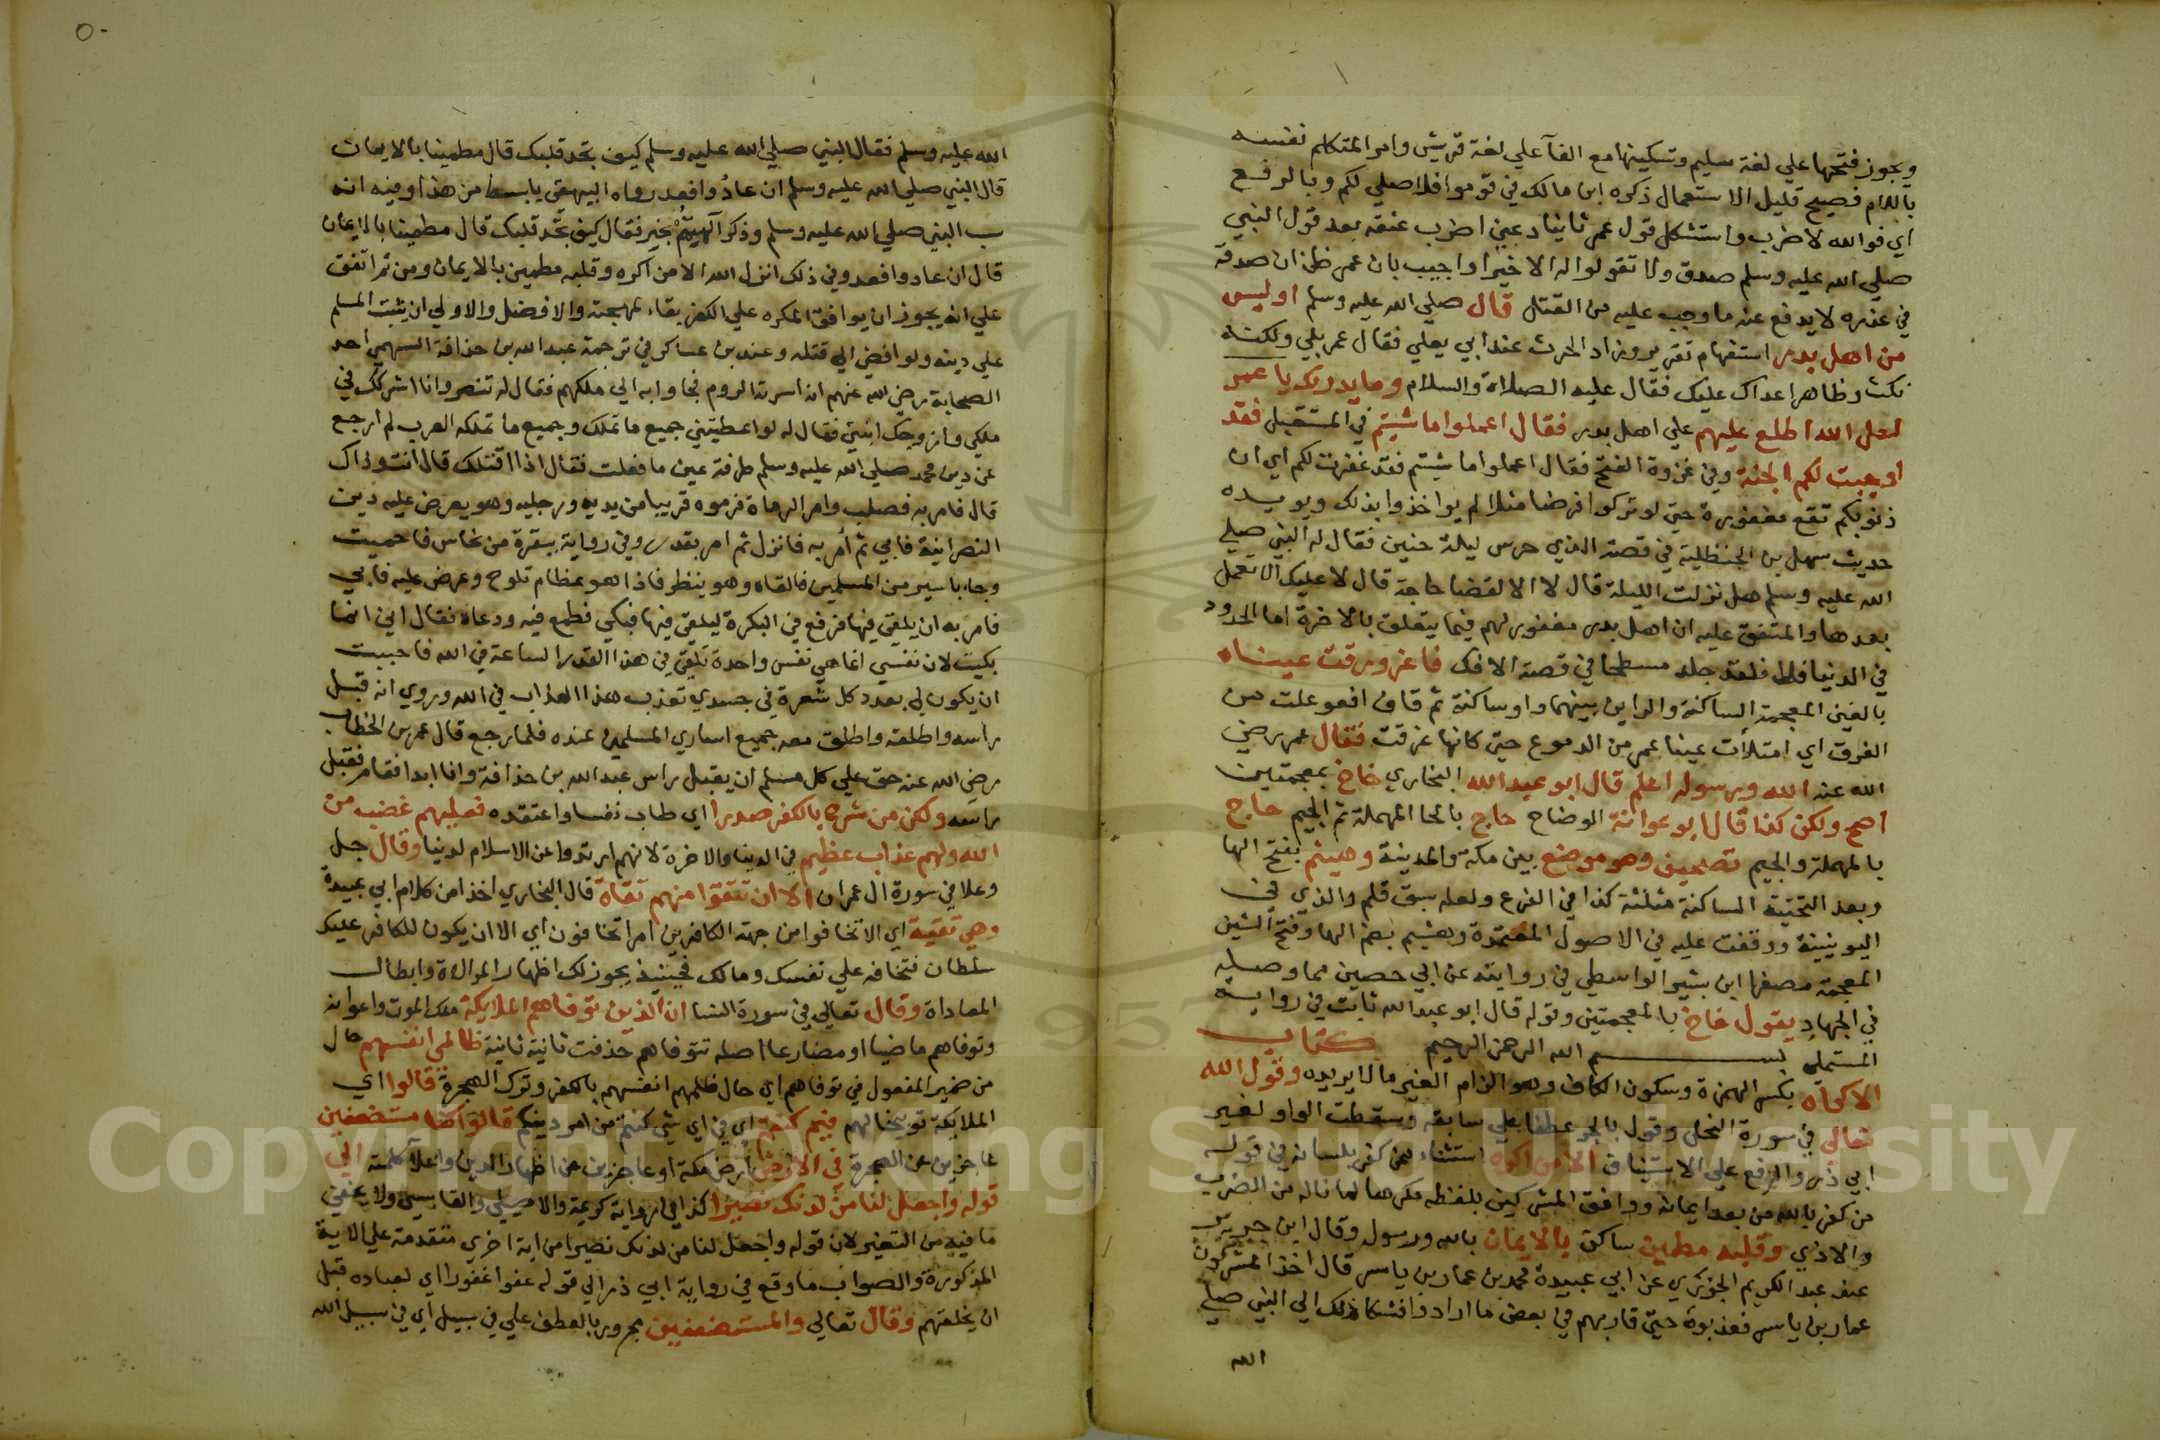 ويجوز فتحها علي لغة سليم وتسكينها مع الفآ علي لغة قريش وامر المتكلم نفسه
باللام فصيح قليل الاستعمال ذكره ابن مالك في قوموا فلاصلي لكم وبالرفع
اي فوالله لاضرب واستشكل قول عمر ثانيا دعني اضرب عنقه بعد قول النبي
صلي الله عليه وسلم صدق ولا تقولوا له الا خيرا واجيب بان عمر ظن ان صدقه
في عذره لا يدفع عنه ما وجب عليه من القتل قال صلي الله عليه وسلم اوليس
من اهل بدر استفهام تقرير وزاد الحرث عند ابي يعلي فقال عمر بلي ولكنه
نكث وظاهر اعداك عليك فقال عليه الصلاة والسلام وما يدريك يا عمر
لعل الله اطلع عليهم علي اهل بدر فقال اعملوا ما شيتم في المستقبل فقد
اوجبت لكم الجنة وفي غزوة الفتح فقال اعملوا ما شيتم فقد غفرت لكم اي ان
ذنوبكم تقع مغفورة حتي لو تركوا فرضا مثلا لم يواخذوا بذلك ويويده
حديث سهل بن الحنظلية في قصة الذي حرس ليلة حنين فقال له النبي صلي
الله عليه وسلم هل نزلت الليلة قال لا الا لقضا حاجة قال لا عليك الا تعمل
بعدها والمتفق عليه ان اهل بدر مغفور لهم فيما يتعلق بالاخرة اما الحدود
في الدنيا فلا فلقد جلد مسطحا في قصة الافك فاغرورقت عيناه
بالغين المعجمة الساكنة والراين بينهما واو ساكنة ثم قاف افعوعلت من
الغرق اي امتلأت عينا عمر من الدموع حتي كانها غرقت فقال عمر رضي
الله عنه الله ورسوله اعلم قال ابو عبد الله البخاري خاخ بمعجمتين
اصح ولكن كذا قال ابو عوانة الوضاح حاج بالحا المهملة ثم الجيم حاج
بالمهملة والجيم تصحيف وهو موضع بين مكة والمدينة وهيثم بفتح الها
وبعد التحتية الساكنة مثلثة كذا في الفرع ولعله سبق قلم والذي في
اليونينية ووقفت عليه في الاصول المعتمدة وهشيم بضم الها وفتح الشين
المعجمة مصغرا ابن بشير الواسطي في روايته عن ابي حصين مما وصله
في الجهاد يقول خاخ بالمعجمتين وقوله قال ابو عبد الله ثابت في رواية
المستملي بسم الله الرحمن الرحيم كتاب
الاكراه بكسر الهمزة وسكون الكاف وهو الزام الغير ما لا يريده وقول الله
تعالي في سورة النحل وقول بالجر عطفا علي سابقه وسقطت الواو لغير
ابي ذر والرفع علي الاستيناف الا من اكره استثناء ممن كفر بلسانه في قوله
من كفر بالله من بعد ايمانه ووافق المشركين بلفظه مكرها لما ناله من الضرب
والاذي وقلبه مطمين ساكن بالايمان بالله ورسوله وقال ابن جرير
عن عبد الكريم الجزري عن ابي عبيدة محمد بن عمار بن ياسر قال اخذ المشركون
عمار بن ياسر فعذبوه حتي قاربهم في بعض ما ارادوا فشكا ذلك الي النبي صلي
الله
٥٠
الله عليه وسلم فقال النبي صلي الله عليه وسلم كيف تجد قلبك قال مطمينا بالايمان
قال النبي صلي الله عليه وسلم ان عادوا فعد رواه البيهقي بابسط من هذا وفيه انه
سب النبي صلي الله عليه وسلم وذكر آلهتهم بخير فقال كيف تجد قلبك قال مطمينا بالايمان
قال ان عادوا فعد وفي ذلك انزل الله الا من اكره وقلبه مطمين بالايمان ومن ثم اتفق
علي انه يجوز ان يوافق المكره علي الكفر بقاء لمهجته والافضل والاولي ان يثبت المسلم
علي دينه ولو افضي الي قتله وعند بن عساكر في ترجمة عبد الله بن حذافة السهمي احد
الصحابة رضي الله عنهم انه اسرته الروم فجاوا به الي ملكهم فقال له تنصر وانا اشركك في
ملكي وازوجك ابنتي فقال له لو اعطيتني جميع ما تملك وجميع ما تملكه العرب لم ارجع
عن دين محمد صلي الله عليه وسلم طرفة عين ما فعلت فقال اذا اقتلك قال انت وذاك
قال فامر به فصلب وامر الرماة فرموه قريبا من يديه ورجليه وهو يعرض عليه دين
النصرانية فابي ثم أمر به فانزل ثم امر بقدر وفي رواية ببقرة من نحاس فاحميت
وجاء باسير من المسلمين فالقاه وهو ينظر فاذا هو عظام تلوح وعرض عليه فابي
فامر به ان يلقي فيها فرفع في البكرة ليلقي فيها فبكي فطمع فيه ودعاه فقال اني انما
بكيت لان نفسي انما هي نفس واحدة تلقي في هذا القدر الساعة في الله فاحببت
ان يكون لي بعدد كل شعرة في جسدي تعذب هذا العذاب في الله وروي انه قبل
راسه واطلقه واطلق معه جميع اساري المسلمين عنده فلما رجع قال عمر بن الخطاب
رضي الله عنه حق علي كل مسلم ان يقبل راس عبد الله بن حذافة وانا ابدا فقام فقبل
راسه ولكن من شرح بالكفر صدرا اي طاب نفسا واعتقده فعليهم غضب من
الله ولهم عذاب عظيم في الدنيا والاخرة لانهم ارتدوا عن الاسلام لدنيا وقال جل
وعلا في سورة ال عمران الا ان تتقوا منهم تقاة قال البخاري اخذا من كلام ابي عبيدة
وهي تقية اي الا تخافوا من جهة الكافرين امرا تخافون اي الا ان يكون للكافر عليك
سلطان فتخافه علي نفسك ومالك فحينيذ يجوز لك اظهار الموالاة وابطال
المعاداة وقال تعالي في سورة النسا ان الذين توفاهم الملايكة ملك الموت واعوانه
وتوفاهم ماضيا او مضارعا اصله تتوفاهم حذفت ثانية ثانية ظالمي انفسهم حال
من ضمير المفعول في توفاهم اي حال ظلمهم انفسهم بالكفر وترك الهجرة قالوا اي
الملايكة توبيخا لهم فيم كنتم اي في اي شي كنتم من امر دينكم قالوا كنا مستضعفين
عاجزين عن الهجرة في الارض ارض مكة او عاجزين عن اظهار الدين واعلا كلمته الي
قوله واجعل لنا من لدنك نصيرا كذا في رواية كريمة والاصيلي والقابسي ولا يخفي
ما فيه من التغير لان قوله واجعل لنا من لدنك نصيرا من اية اخري متقدمة علي الاية
المذكورة والصواب ما وقع في رواية ابي ذر الي قوله عفوا غفورا اي لعباده قبل
ان يخلقهم وقال تعالي والمستضعفين مجرور بالعطف علي في سبيل اي في سبيل الله
Copyright © King Saud University
957